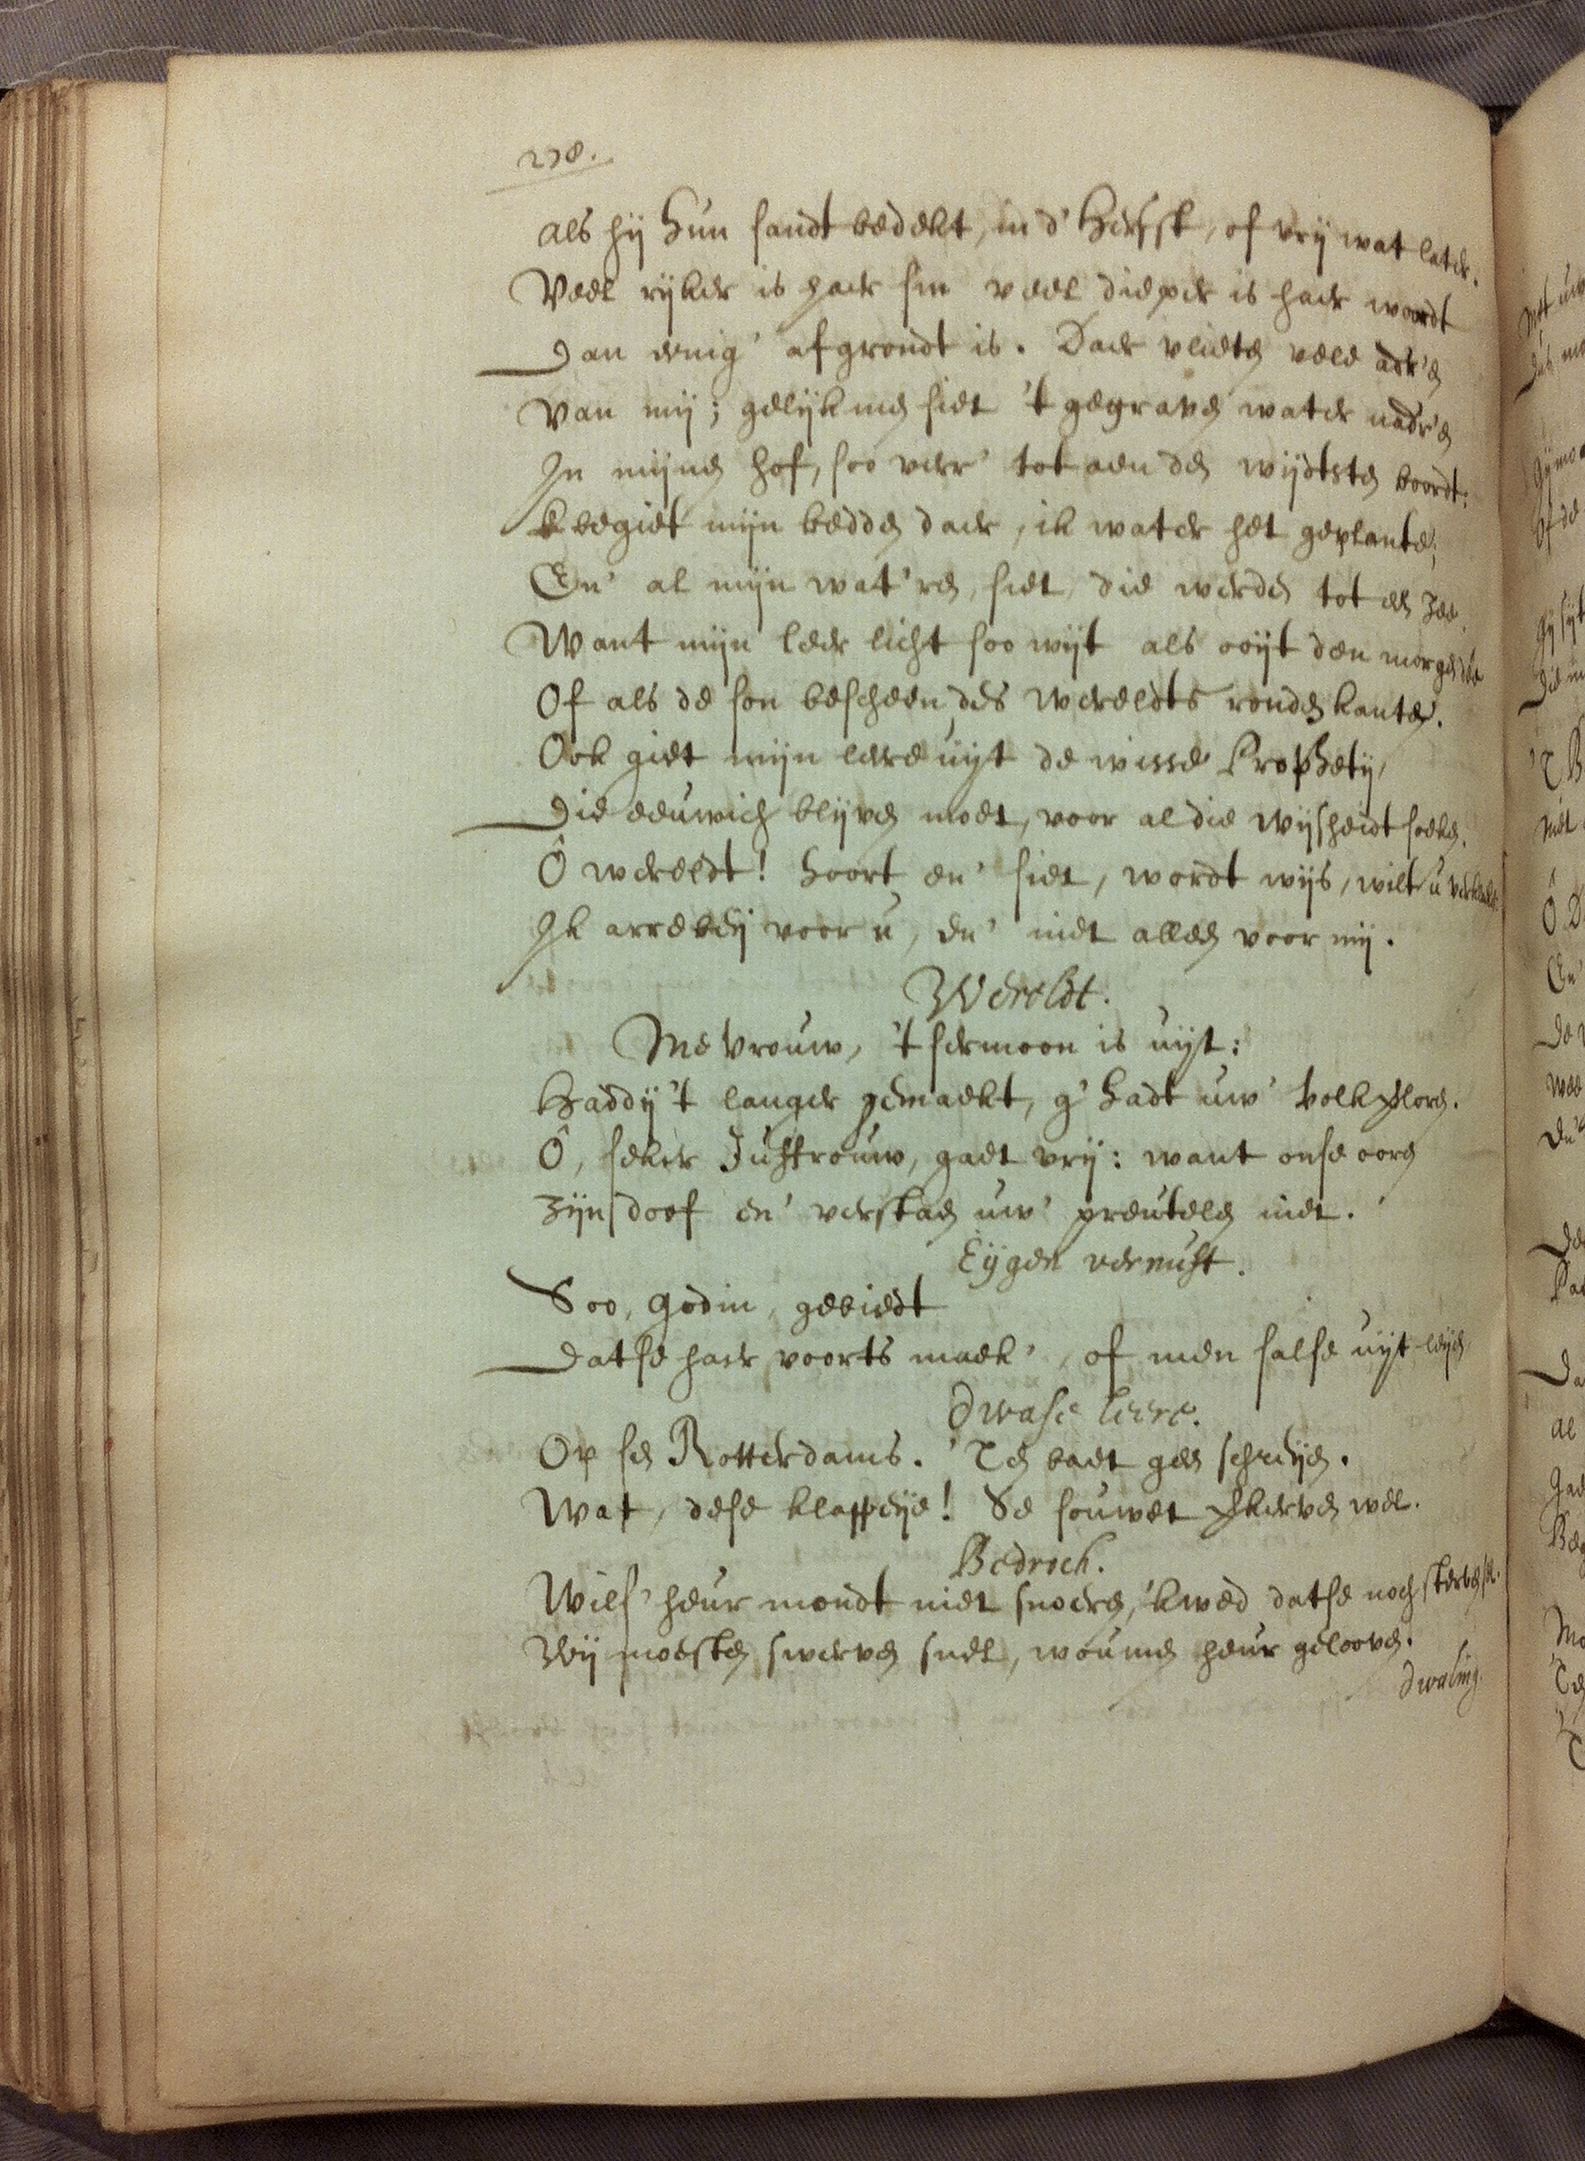 278.
als hij hun landt bedekt, in d' Herfst, of vrij wat later.
Veel rijker is haer sin veel dieper is haer woordt
Dan eenig' afgrondt is. Daer vlieten vele adr'en
Van mij; gelijk men siet 't gegraven water nadr'en
In mijnen hof, soo verr' tot aen den wijdtsten boordt:
Ik begiet mijn bedden daer, ik water het geplante;
En' al mijn wat'ren, siet, die werden tot een Zee.
Want mijn leer licht soo wijt als ooijt den morgen dee
Of als de son bescheen, des werelts ronden kante.
Ook giet mijn leere uijt de wisse Prophetij,
Die eeuwich blijven moet, voor al die wijsheidt soeken.
Ô wereldt! hoort en' siet, wordt wijs, wilt u
Ik arrebeij voor u, en' niet alleen voor mij.
Wereldt.
Mevrouw, 't sermoon is uijt:
Haddij 't langer gemaekt, g' hadt uw' volk verloren.
Ô, seker Juffrouw, gaet vrij: want onse ooren
Zijn doof en' verstaen uw' preutelen niet.
Eijgen vernuft.
Soo, godin, gebiedt
Datse haer voorts maek', of men salse uijt leijen
Dwase leere.
Op sen Rotterdams. 'Ten baet geen schreijen.
Wat, dese klappeije! Se souwet verkerven wel.
Bedroch.
Wils' heur mondt niet snoeren, 'k wed datse noch sterven sel.
Wij moesten swerven snel, wou men heur gelooven.
Dwaling.